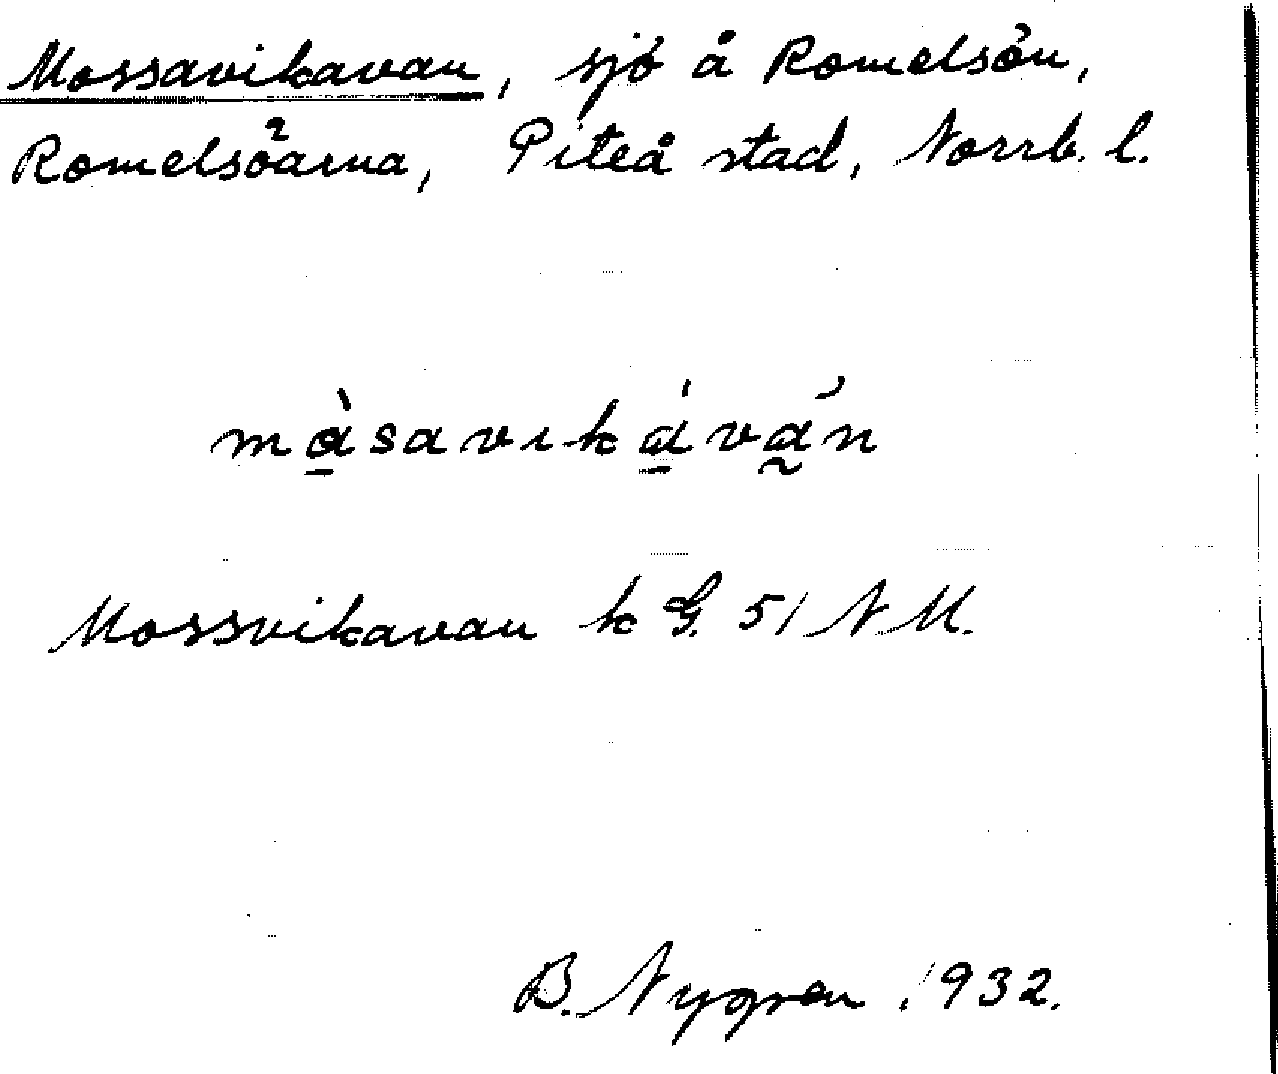 Mossavikavan, sjö å Romelsön,
Romelsöarna, Piteå stad, Norrb. l.
mà̱savıká̱vá̰n
Mossvikavan k G. 51 N M.
B. Nygren 1932.